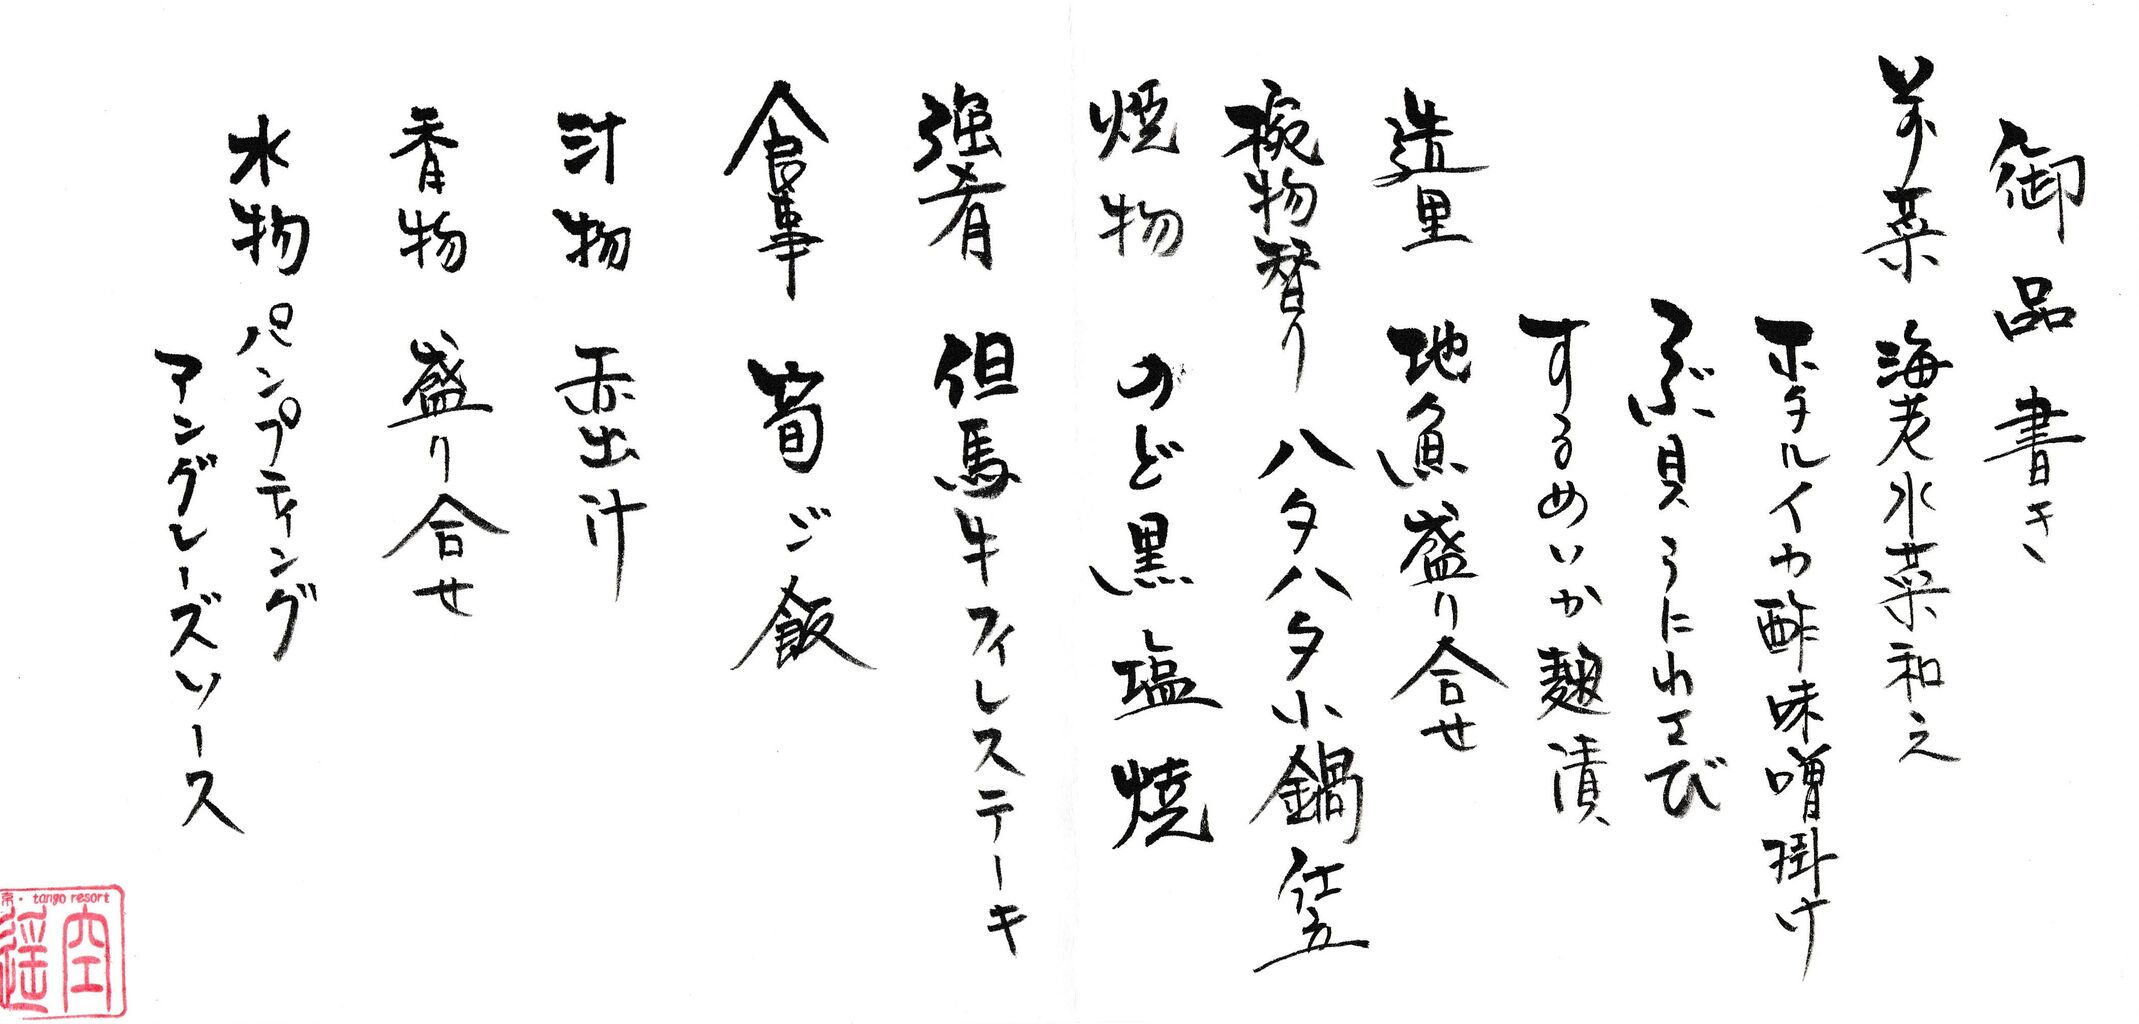 御品書き
前菜 海老水菜和え
ホタルイカ酢味噌掛け
つぶ貝うにわさび
するめいか麹漬
造里 地魚盛り合せ
椀物替り ハタハタ小鍋仕立
焼物 のど黒塩焼
強肴 但馬牛フィレステーキ
食事 筍ご飯
汁物 赤出汁
香物 盛り合せ
水物 パンプティング
アングレーズソース
京・tango resort
空遥